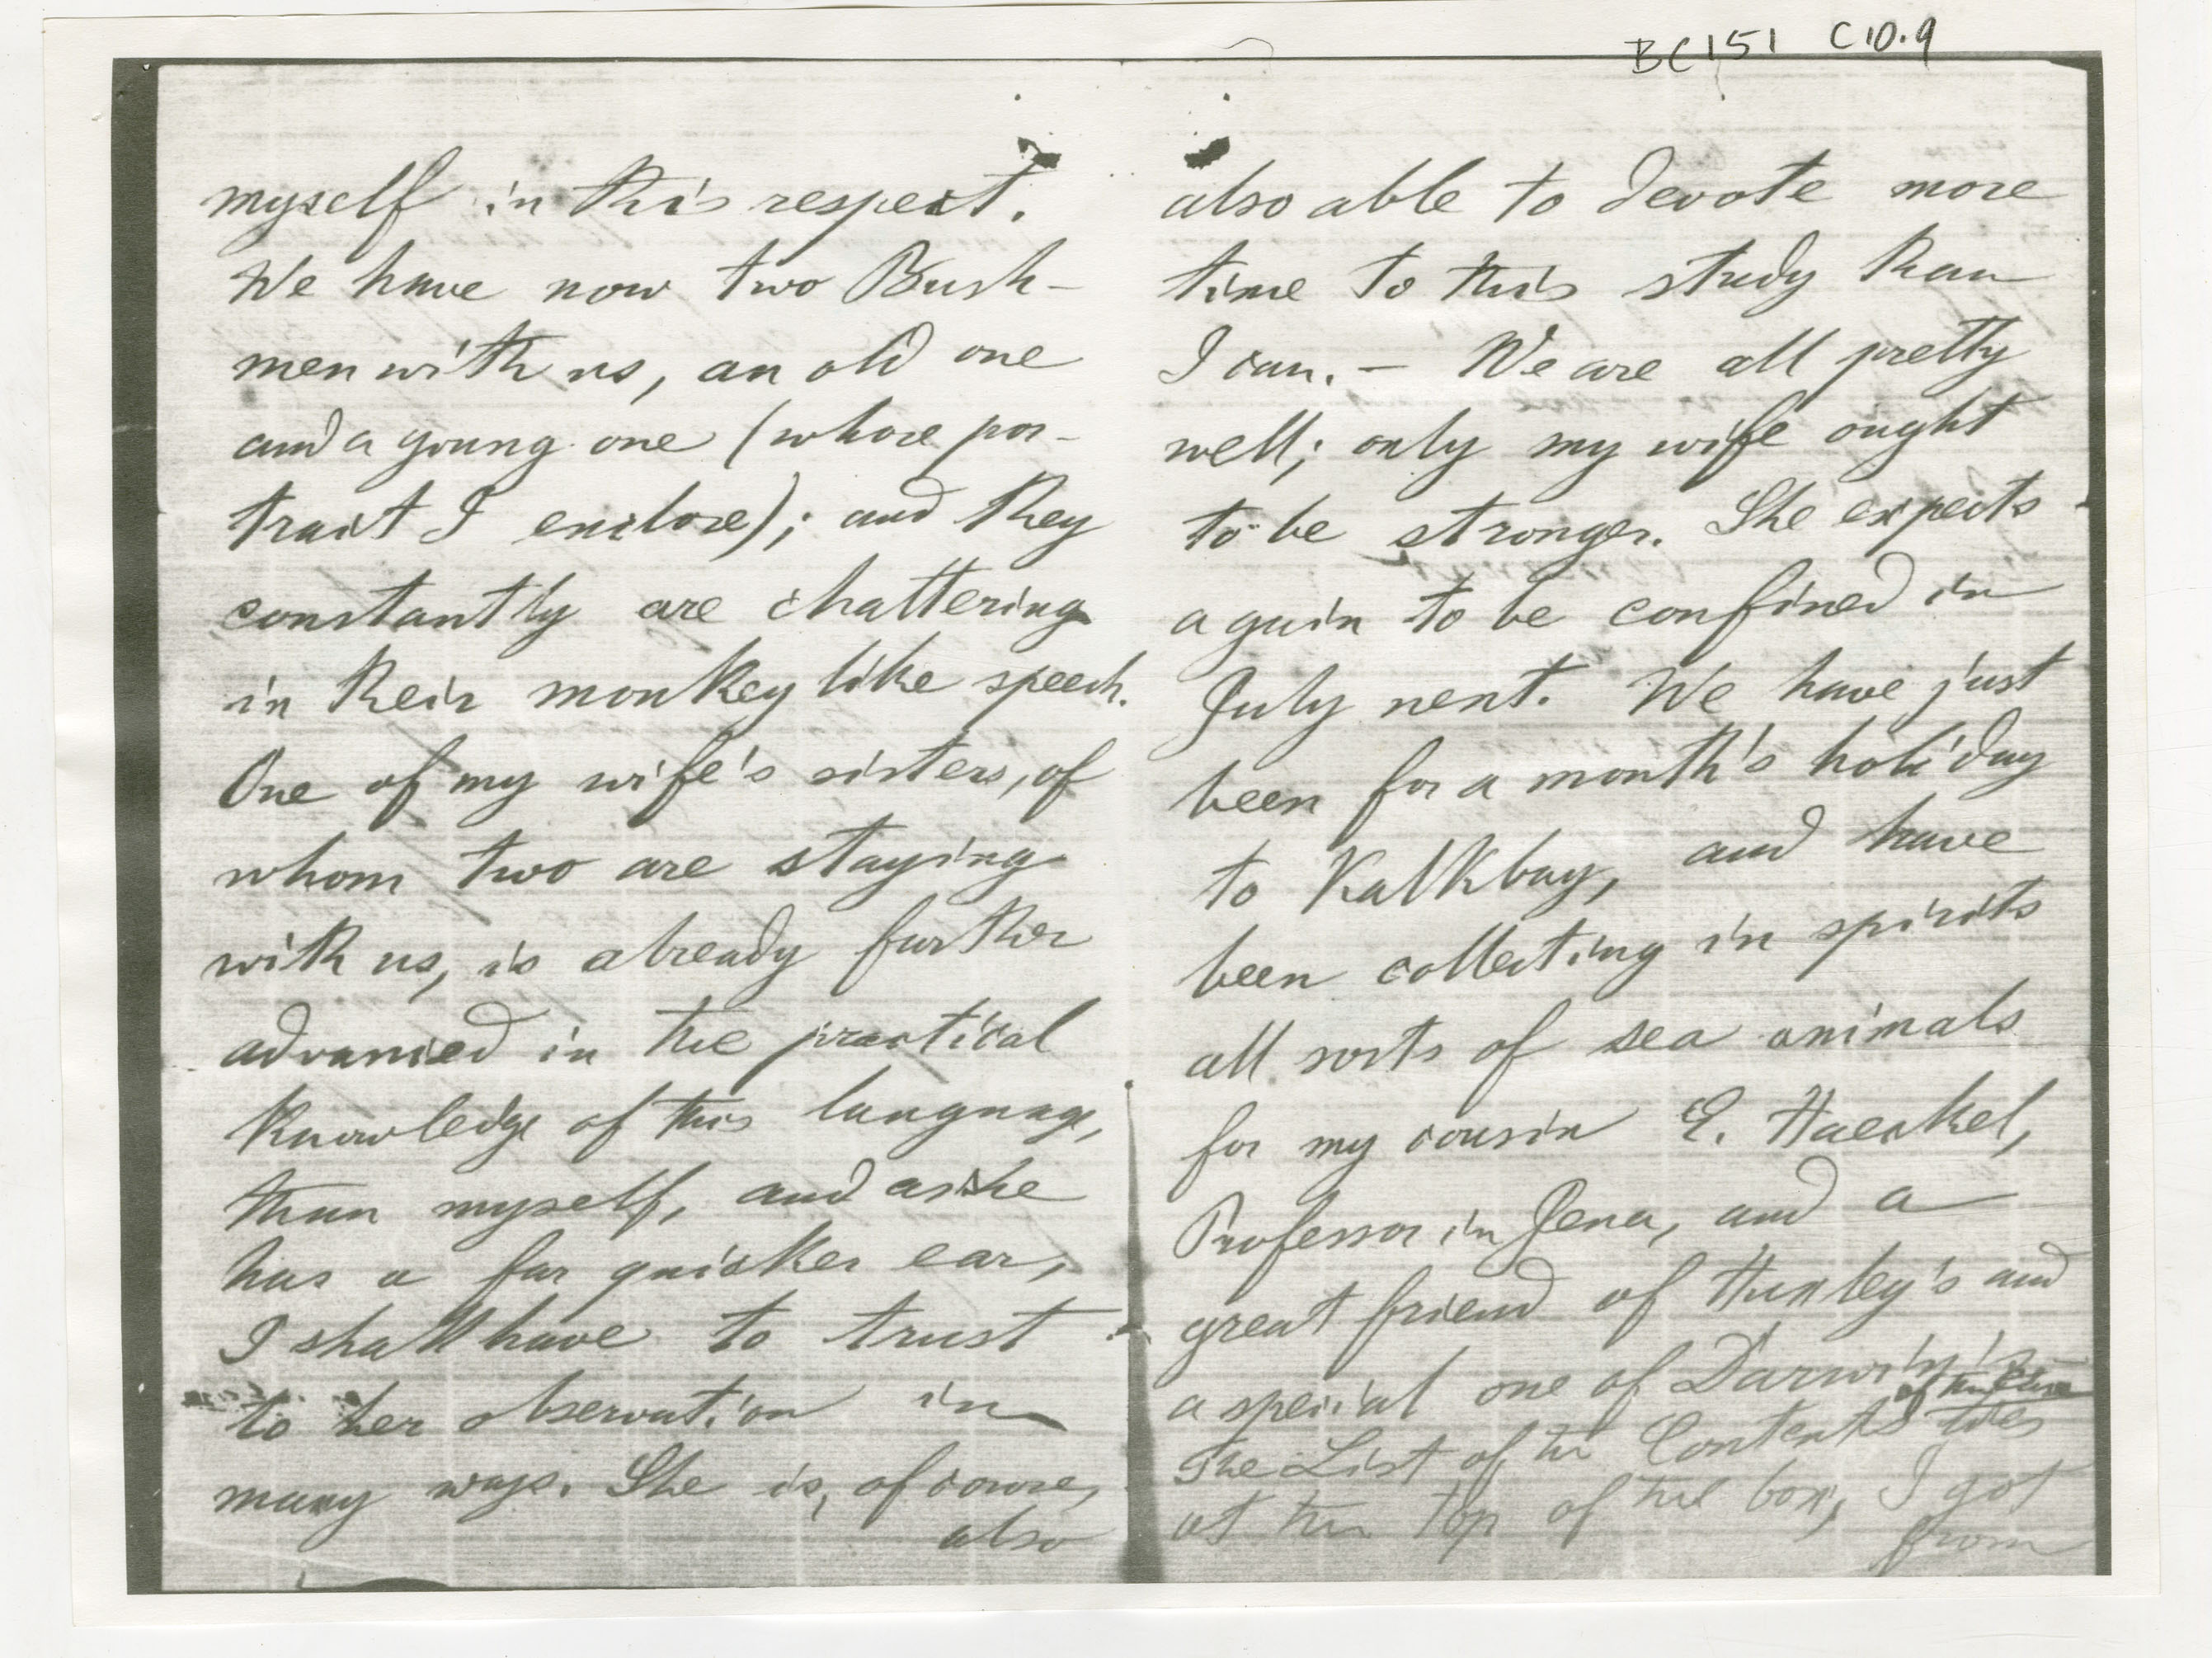 BC151 C10.9
myself in this respect.
We have now two Bush-
men with us, an old one
and a young one (whose por-
trait I enclose); and they
constantly are chattering
in their monkey like speech.
One of my wife's sisters, of
whom two are staying
with us, is already further
advanced in the practical
knowledge of this language,
than myself, and as she
has a far quicker ear,
I shall have to trust
to her observation in
many ways. She is, of course,
also
also able to devote more
time to this study than
I can. — We are all pretty
well; only my wife ought
to be stronger. She expects
again to be confined in
July next. We have just
been for a month's holiday
to Kalkbay, and have
been collecting in spirits
all sorts of sea animals
for my cousin E. Haeckel,
Professor in Jena, and a
great friend of Huxley's and
a special one of Darwin's
The List of the Contents
at the top of the box, I got
from